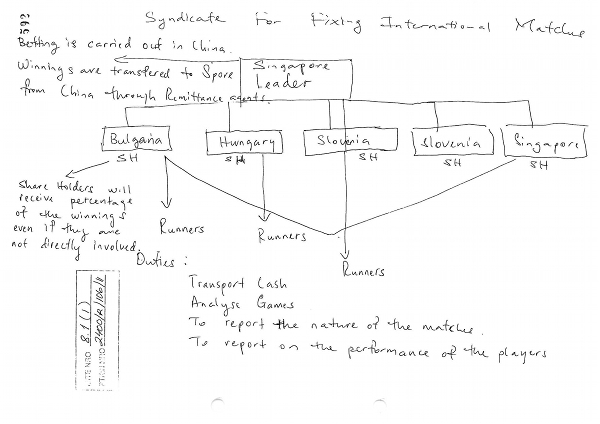 Syndicate For Fixing International Matches
Betting is carried out in China.
Winnings are transfered to Spore
from China through Remittance agents.
Singapore
Leader
Bulgaria
SH
Hungary
SH
Slovenia
SH
Slovenia
SH
Singapore
SH
Share Holders will
receive percentage
of the winnings
even if they are
not directly involved.
Runners
Runners
Runners
Duties :
Transport Cash
Analyse Games
To report the nature of the matches.
To report on the performance of the players
8.1 (1)
2400/R/106/